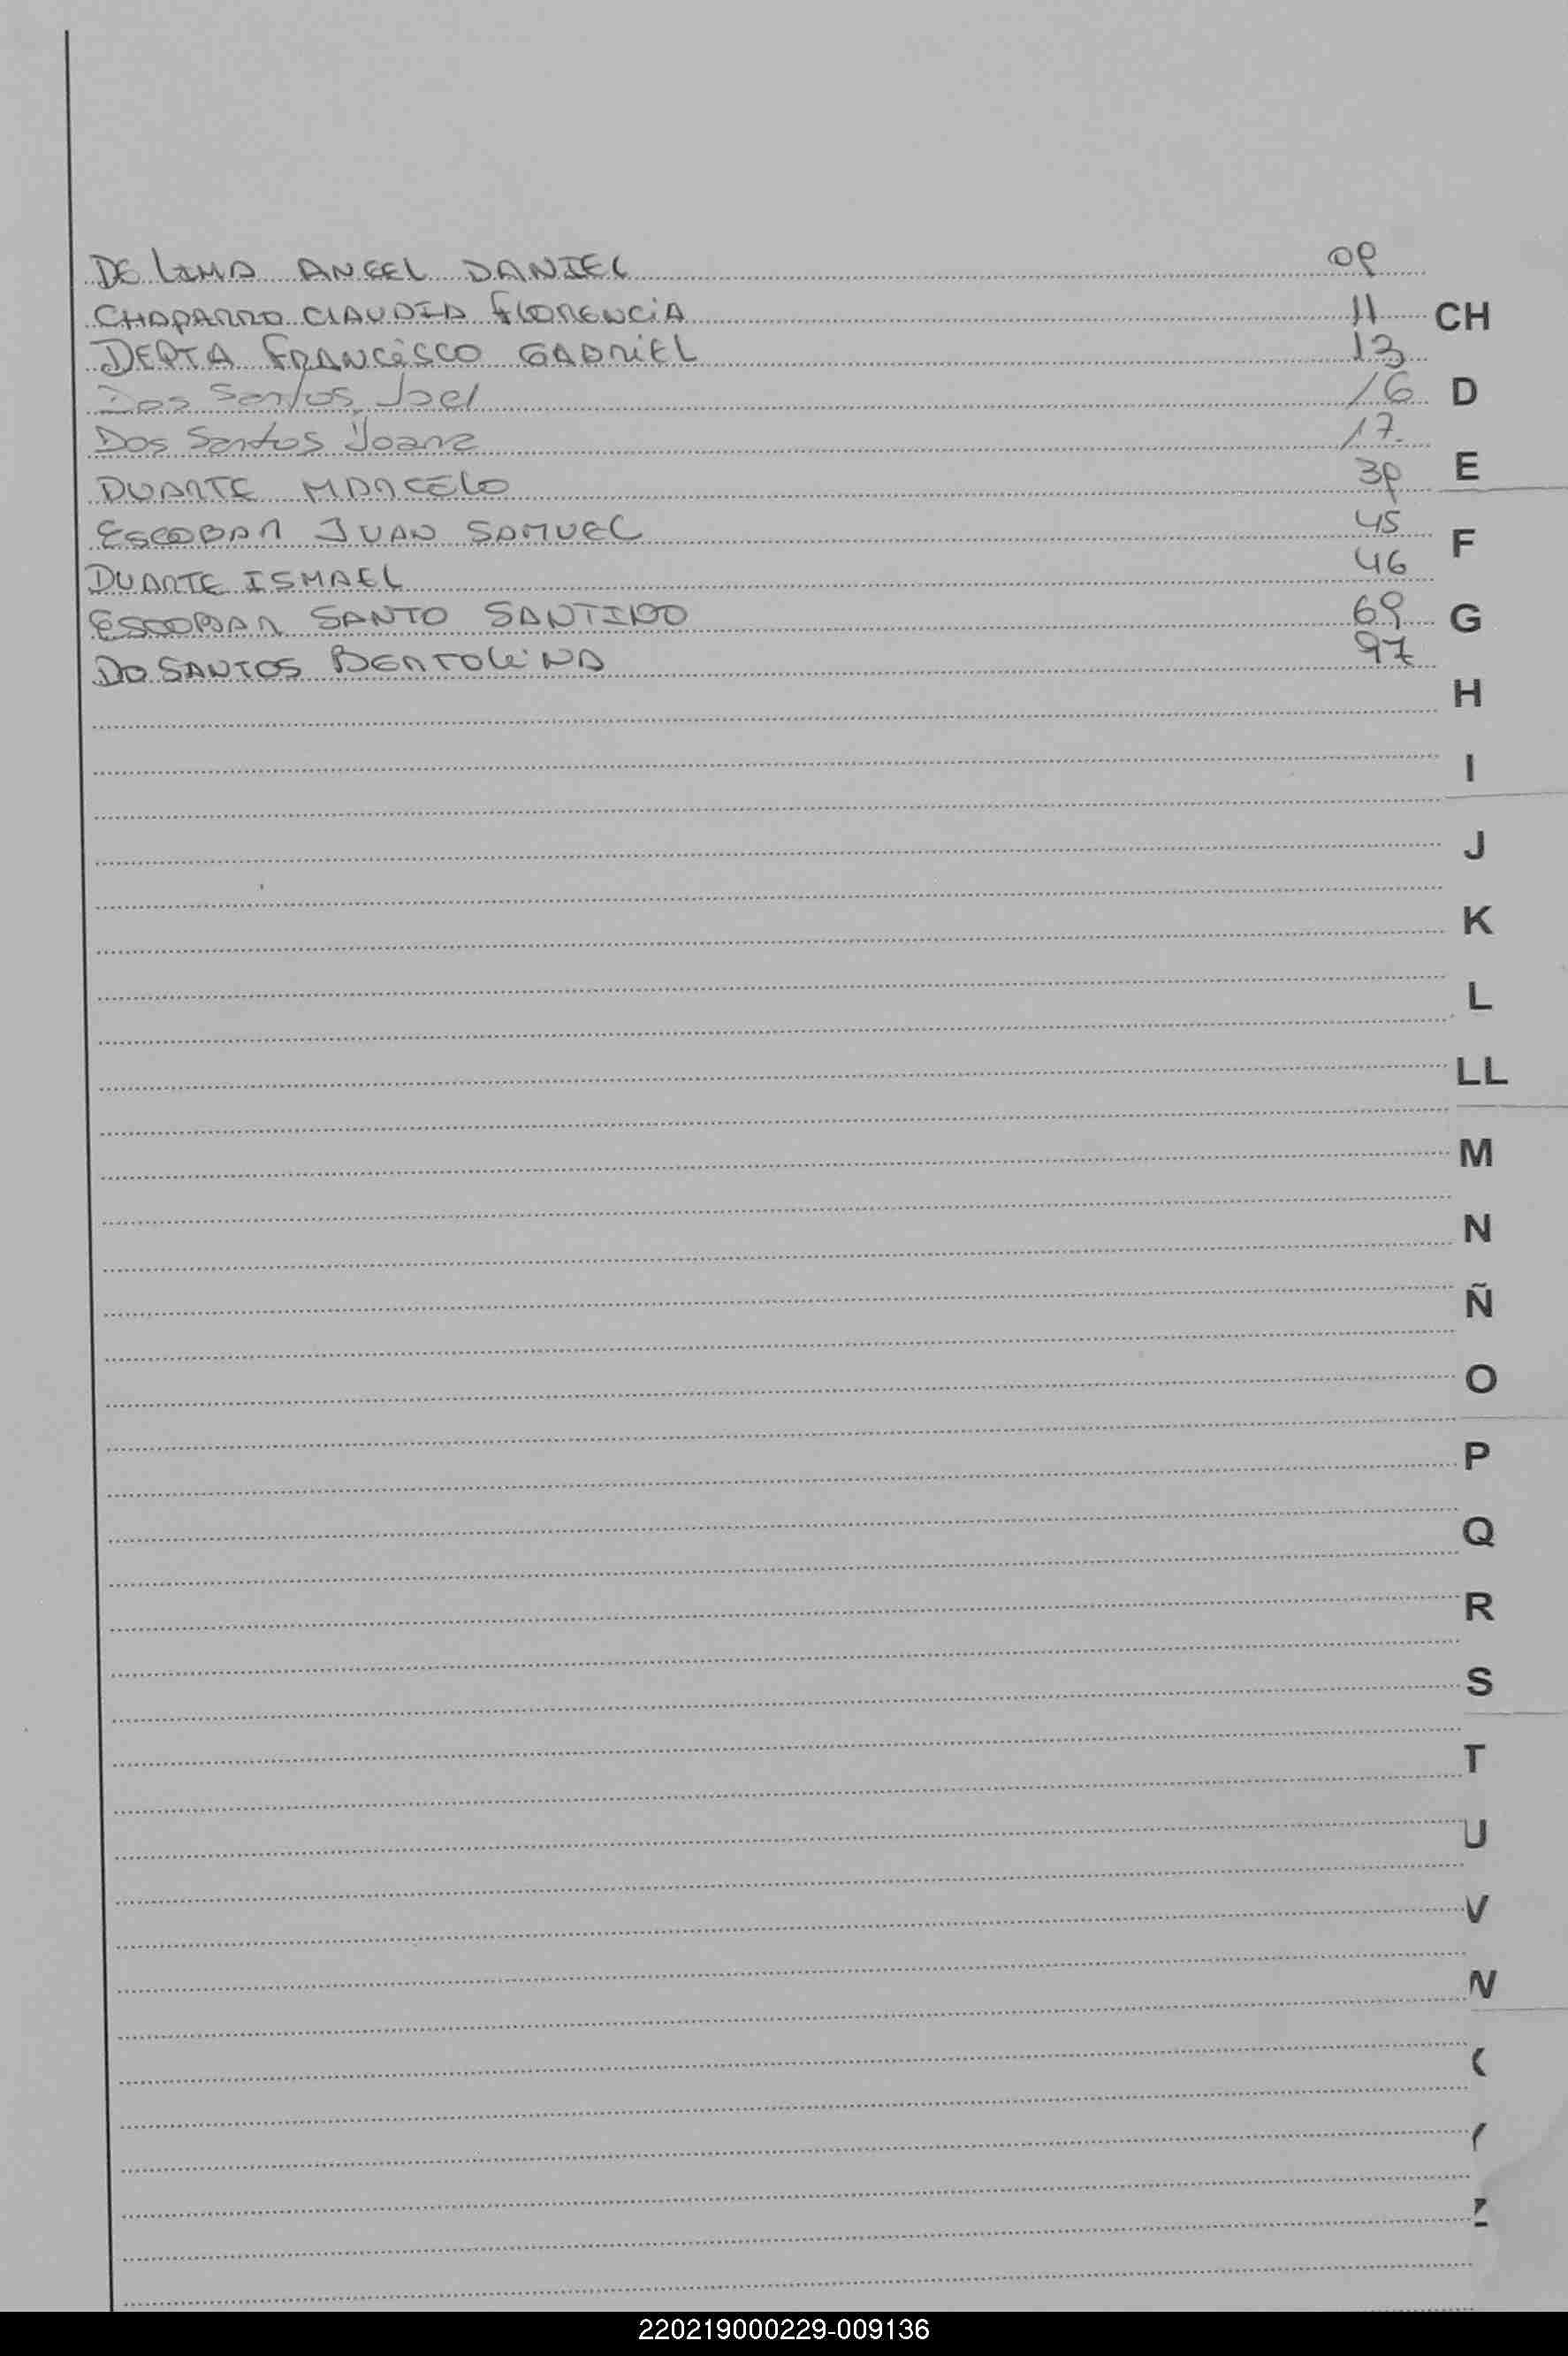 DE LIMA ANGEL DANIEL 09
CHAPARRO CLAUDIA FLORENCIA 11 CH
DEPTA FRANCISCO GABRIEL 13
Dos Santos Joel 16 D
Dos Santos Joana 17
DUARTE MARCELO 39 E
ESCOBAR JUAN SAMUEL 45 F
DUARTE ISMAEL 46
ESCOBAR SANTO SANTINO 69 G
DO SANTOS BERTOLINA 97
H
I
J
K
L
LL
M
N
Ñ
O
P
Q
R
S
T
U
V
220219000229-009136